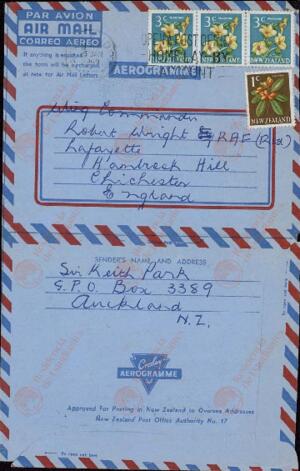 PAR AVION
AIR MAIL
CORREO AEREO
If anything is enclosed
the form will be surcharged
at rate for Air Mail Letters.
AEROGRAMME
OPEN A POST OFFICE
ACCOUNT
3c
3c
3c
NEW ZEALAND
NEW ZEALAND
NEW ZEALAND
1c
NEW ZEALAND
Wing Commander
Robert Wright RAF (Rtd)
Lafayette
Hambrook Hill
Chichester
England
SENDER'S NAME AND ADDRESS
Sir Keith Park
G.P.O. Box 3389
Auckland
N.Z.
Croxley
AEROGRAMME
Approved for Posting in New Zealand to Oversea Addresses
New Zealand Post Office Authority No. 17
To open cut here